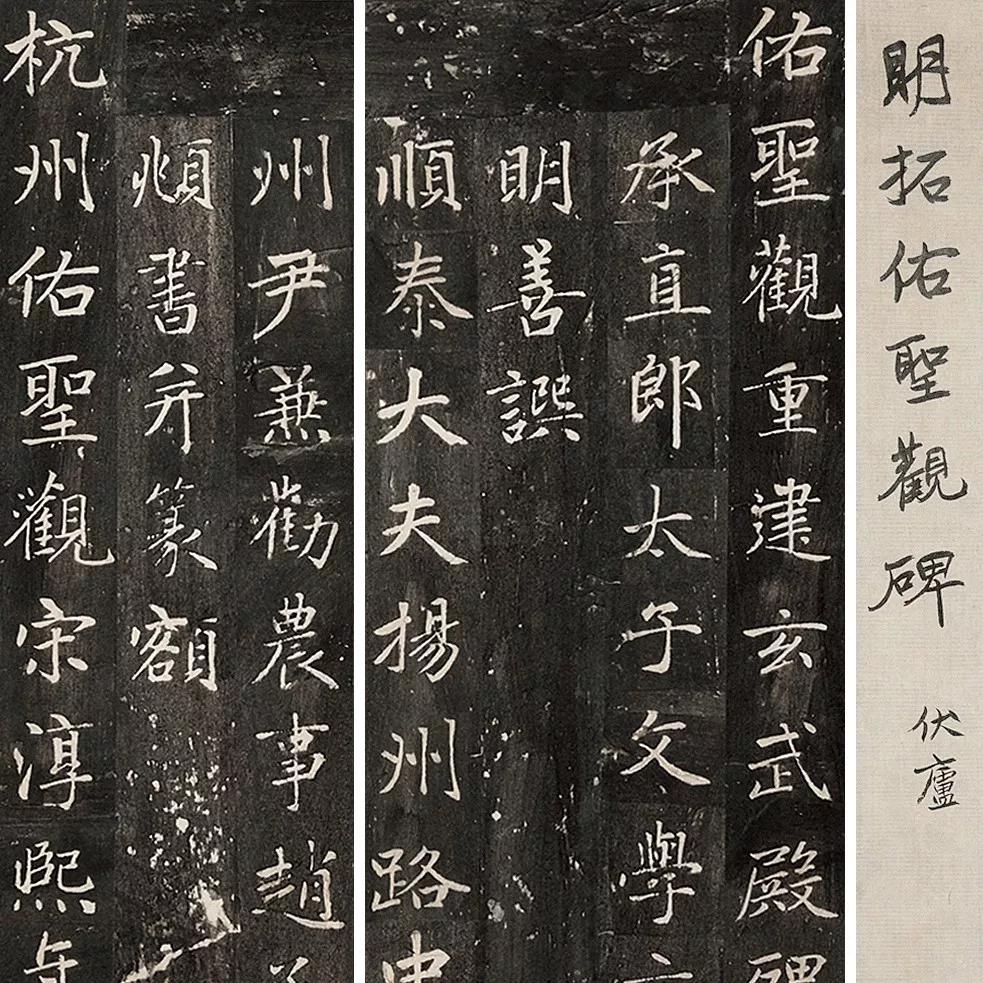 明拓佑聖觀碑
伏廬
佑聖觀重建玄武殿碑
承直郎太子文學
明善譔
順泰大夫揚州路中
州尹兼勸農事趙
頫書并篆額
杭州佑聖觀宋淳熙年